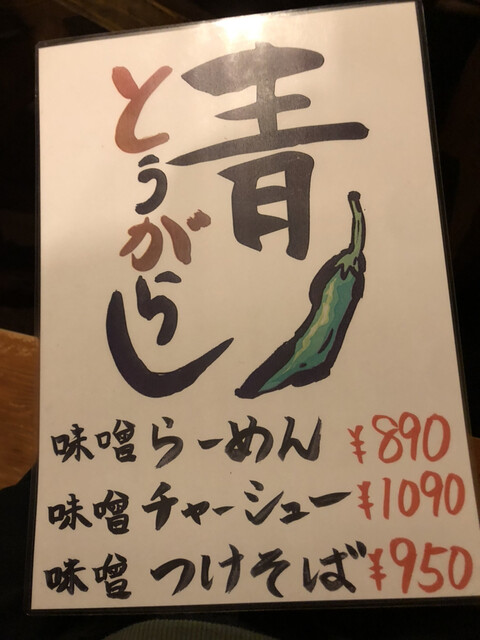 青
とうがらし
味噌らーめん ¥890
味噌チャーシュー ¥1090
味噌つけそば ¥950